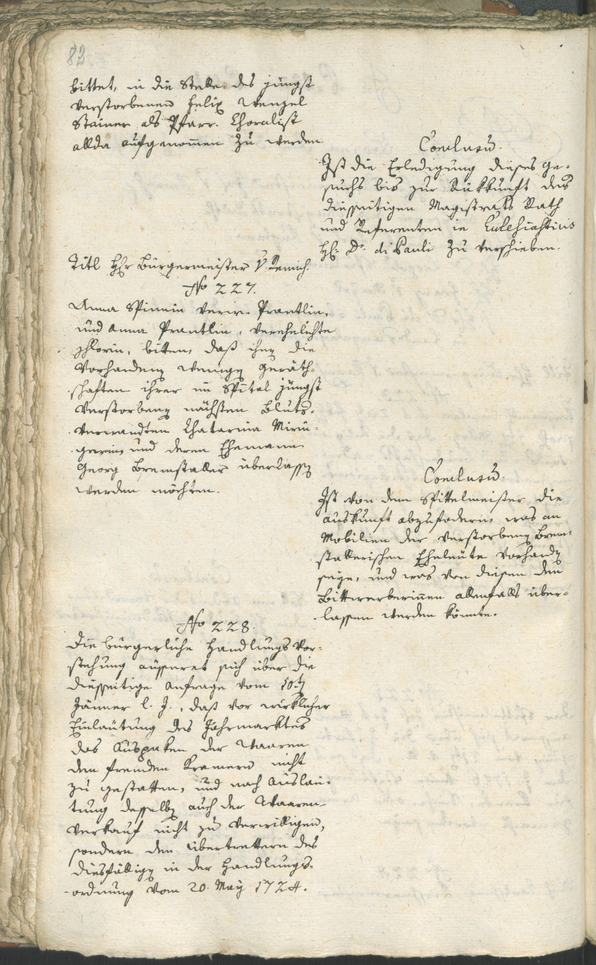 83
bittet, in die Stelle des jüngst
verstorbenen Felix Wenzel
Stainer als Pfarr. Choralist
allda aufgenommen zu werden
Conclusum.
Ist die Erledigung dieses Ge-
suchs bis zur Rükkunft des
diesseitigen Magistrats Rath
und Referenten in Ecclesiasticis
H. D. di Pauli zu verschieben.
Titl Hr Bürgermeister
No 227.
Anna Spinnin verw. Prantlin,
und Anna Prantlin, verehelichte
bitten, daß ihnen die
vorhandenen wenigen Geräth-
schaften ihrer im Spital jüngst
verstorbenen nächsten Bluts-
verwandten Chatarina
und deren Ehemann
Georg Bremstaller überlassen
werden möchten.
Conclusum.
Ist von dem Spittelmeister die
Auskunft abzufodern, was an
Mobilien der verstorbenen Brem-
stallerischen Eheleüte vorhanden
seye, und was von diesen den
Bittwerberinnen allenfalls über-
lassen werden könnte.
No 228.
Die bürgerliche Handlungs Vor-
stehung äusseret sich über die
diesseitige Anfrage vom 10ten
Jänner l. J., daß vor wirklicher
Einlautung des Jahrmarktes
das Auspaken der Waaren
den fremden Kramern nicht
zu gestatten, und nach Auslau-
tung desselben auch der Waaren-
verkauf nicht zu verwilligen,
sondern den Übertrettern des
diesfälligen in der Handlungs-
ordnung vom 20. May 1724.